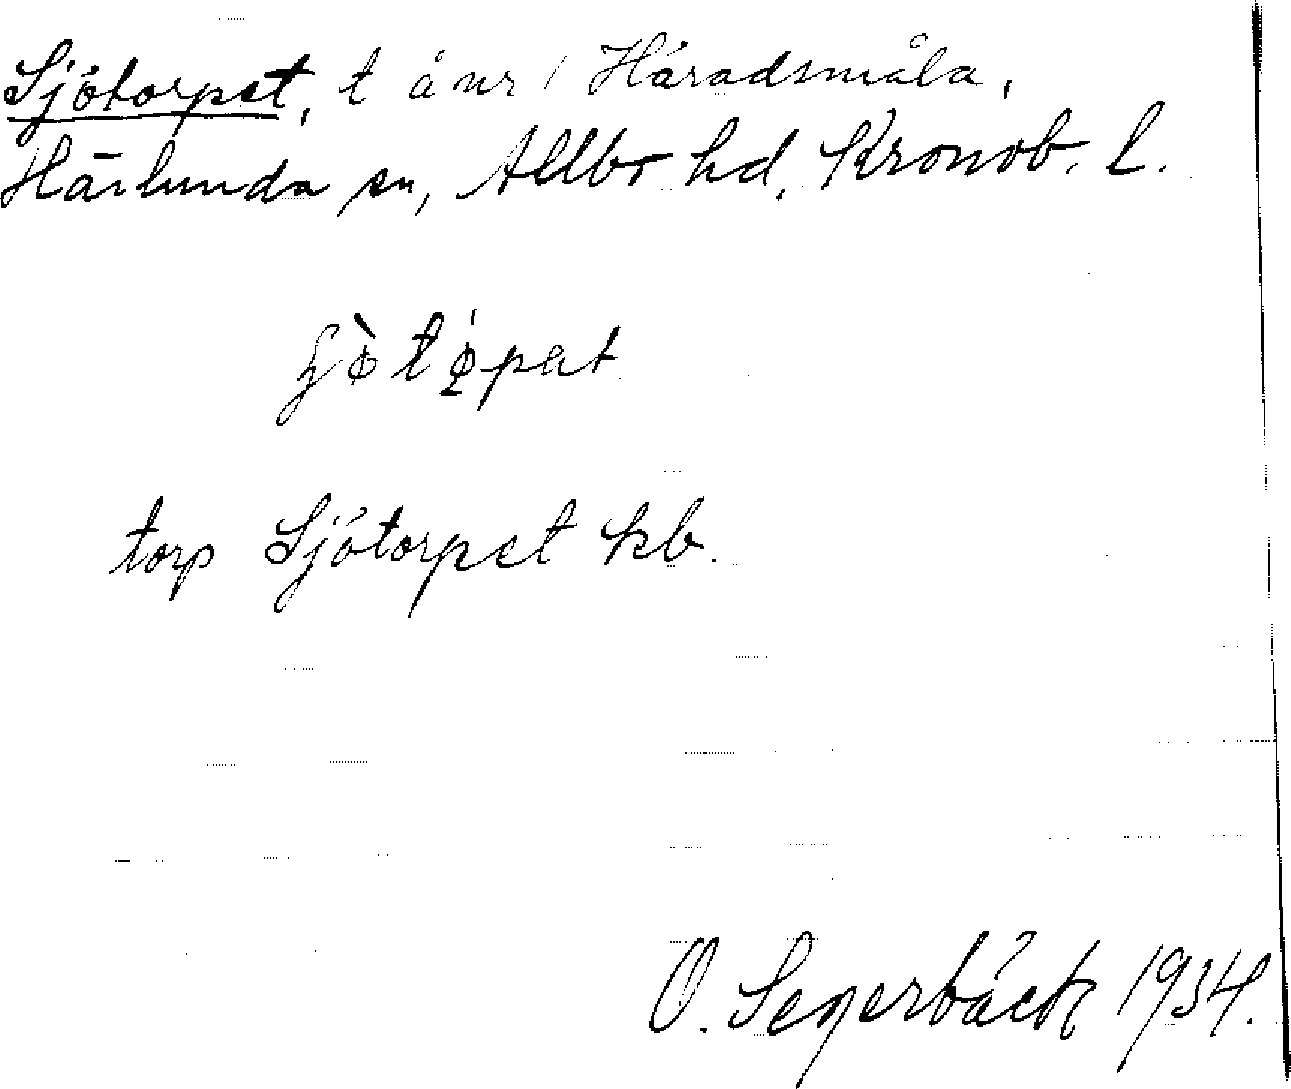 Sjötorpet, t å nr 1 Häradsmåla,
Härlunda sn, Allbo hd, Kronob. l.
torp Sjötorpet kb.
O. Segerbäck 1934.